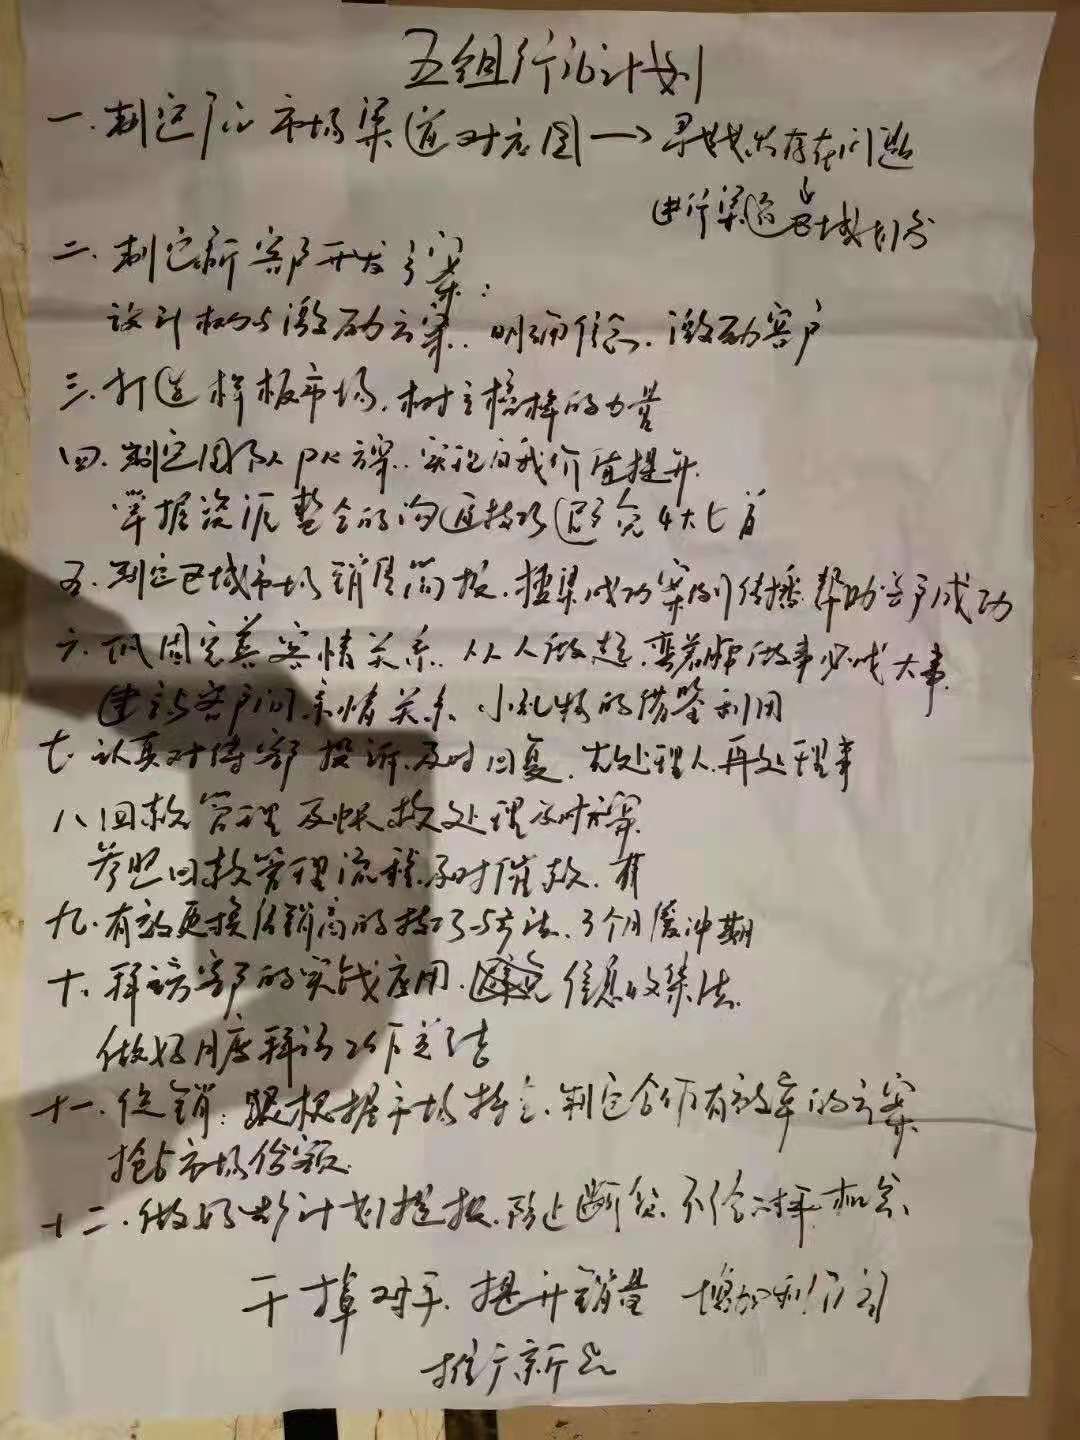 五组行动计划
一.制定产品市场渠道对应图→寻找出存在问题
↓
进行渠道区域划分
二.制定新客户开发方案:
设计机会激励方案.明确信念.激励客户
三.打造样板市场.树立榜样的力量
四.制定团队PK方案.实现自我价值提升.
掌握资源整合的沟通技巧避免4大七首
五.制定区域市场销售简报.搜集成功案例传播帮助客户成功
六.巩固完善客情关系.从人做起.做事必成大事.
建立与客户间亲情关系.小礼物的借鉴利用
七.认真对待客户投诉.及时回复.先处理人.再处理事
八.回款管理及账款处理及时方案.
参照回款管理流程.及时催款.
九.有效更换经销商的技巧与方法.3个月缓冲期
十.拜访客户的实战应用.信息收集法.
做好月度拜访工作总结
十一.促销:根据市场特点.制定合作有效率的方案.
抢占市场份额.
十二.做好计划提报.防止断货.不给对手机会.
干掉对手.提升销量 增加利润
推广新品